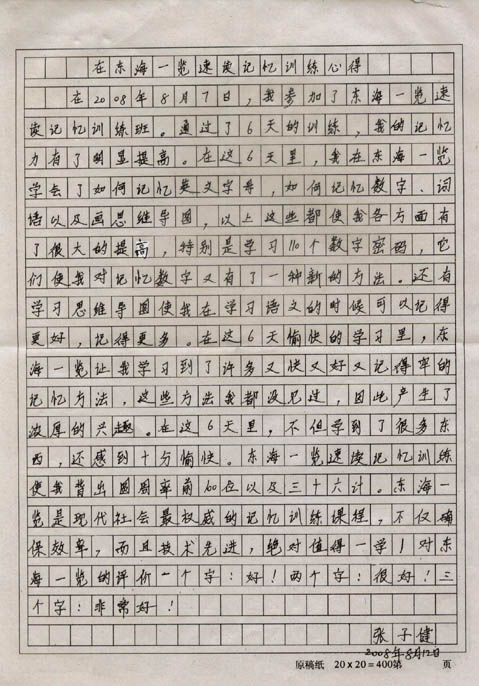 在东海一览速读记忆训练心得
在2008年8月7日，我参加了东海一览速
读记忆训练班。通过了6天的训练，我的记忆
力有了明显提高。在这6天里，我在东海一览
学会了如何记忆英文字母，如何记忆数字、词
语以及画思维导图，以上这些都使我各方面有
了很大的提高，特别是学习110个数字密码，它
们使我对记忆数字又有了一种新的方法。还有
学习思维导图使我在学习语文的时候可以记得
更好，记得更多。在这6天愉快的学习里，东
海一览让我学习到了许多又快又好又记得牢的
记忆方法，这些方法我都没见过，因此产生了
浓厚的兴趣。在这6天里，不但学到了很多东
西，还感到十分愉快。东海一览速读记忆训练
使我背出圆周率前60位以及三十六计。东海一
览是现代社会最权威的记忆训练课程，不仅确
保效率，而且技术先进，绝对值得一学！对东
海一览的评价一个字：好！两个字：很好！三
个字：非常好！
张子健
2008年8月12日
原稿纸 20×20=400第 页